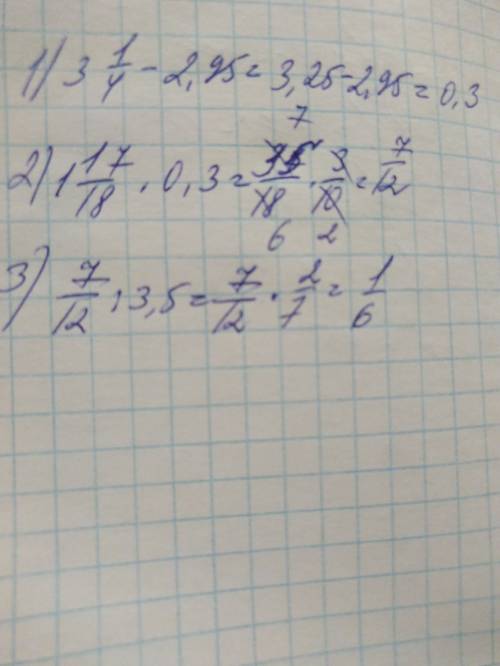 1) 3 1/4 - 2,95 = 3,25 - 2,95 = 0,3
7
2) 1 17/18 · 0,3 = 35/18 · 3/10 = 7/12
6 2
3) 7/12 : 3,5 = 7/12 · 2/7 = 1/6